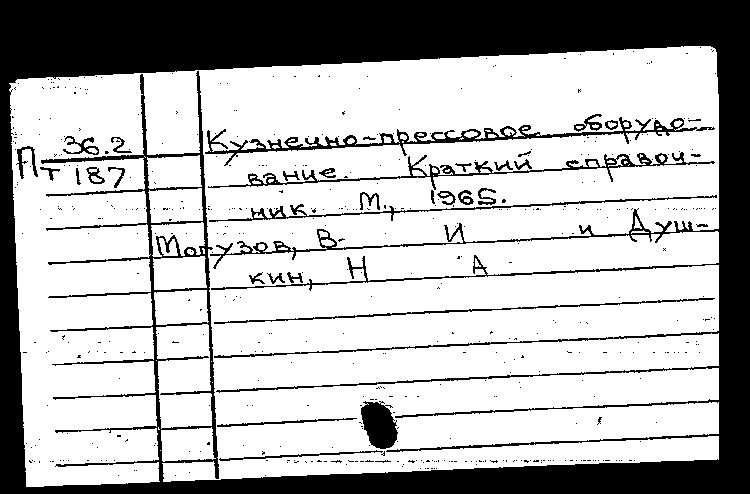 П 36.2 Кузнечно-прессовое оборудо-
т 187 вание. Краткий справоч-
ник. М., 1965.
Могузов, В. И и Душ-
кин, Н А